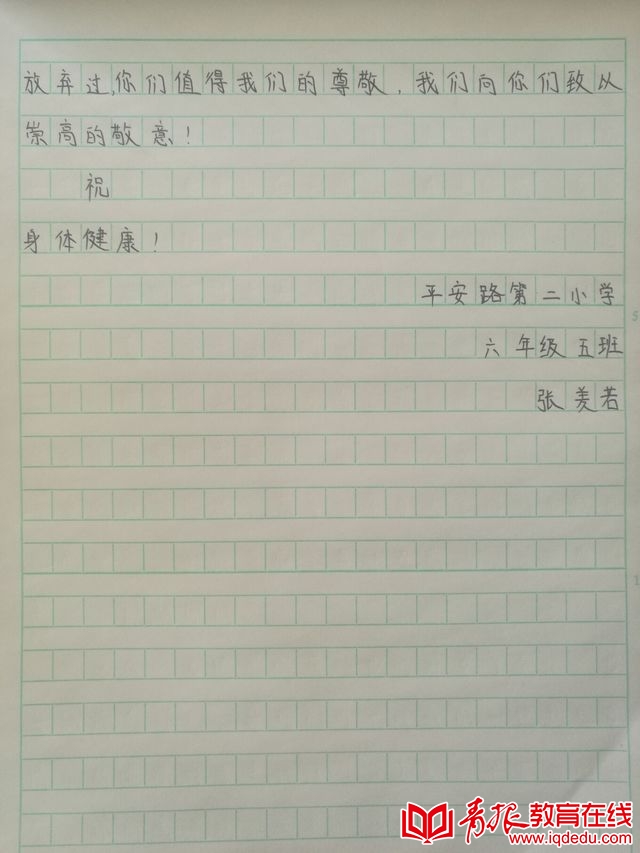 放弃过,你们值得我们的尊敬，我们向你们致以
崇高的敬意！
祝
身体健康！
平安路第二小学
六年级五班
张羑若
5
1
青报教育在线
www.iqdedu.com